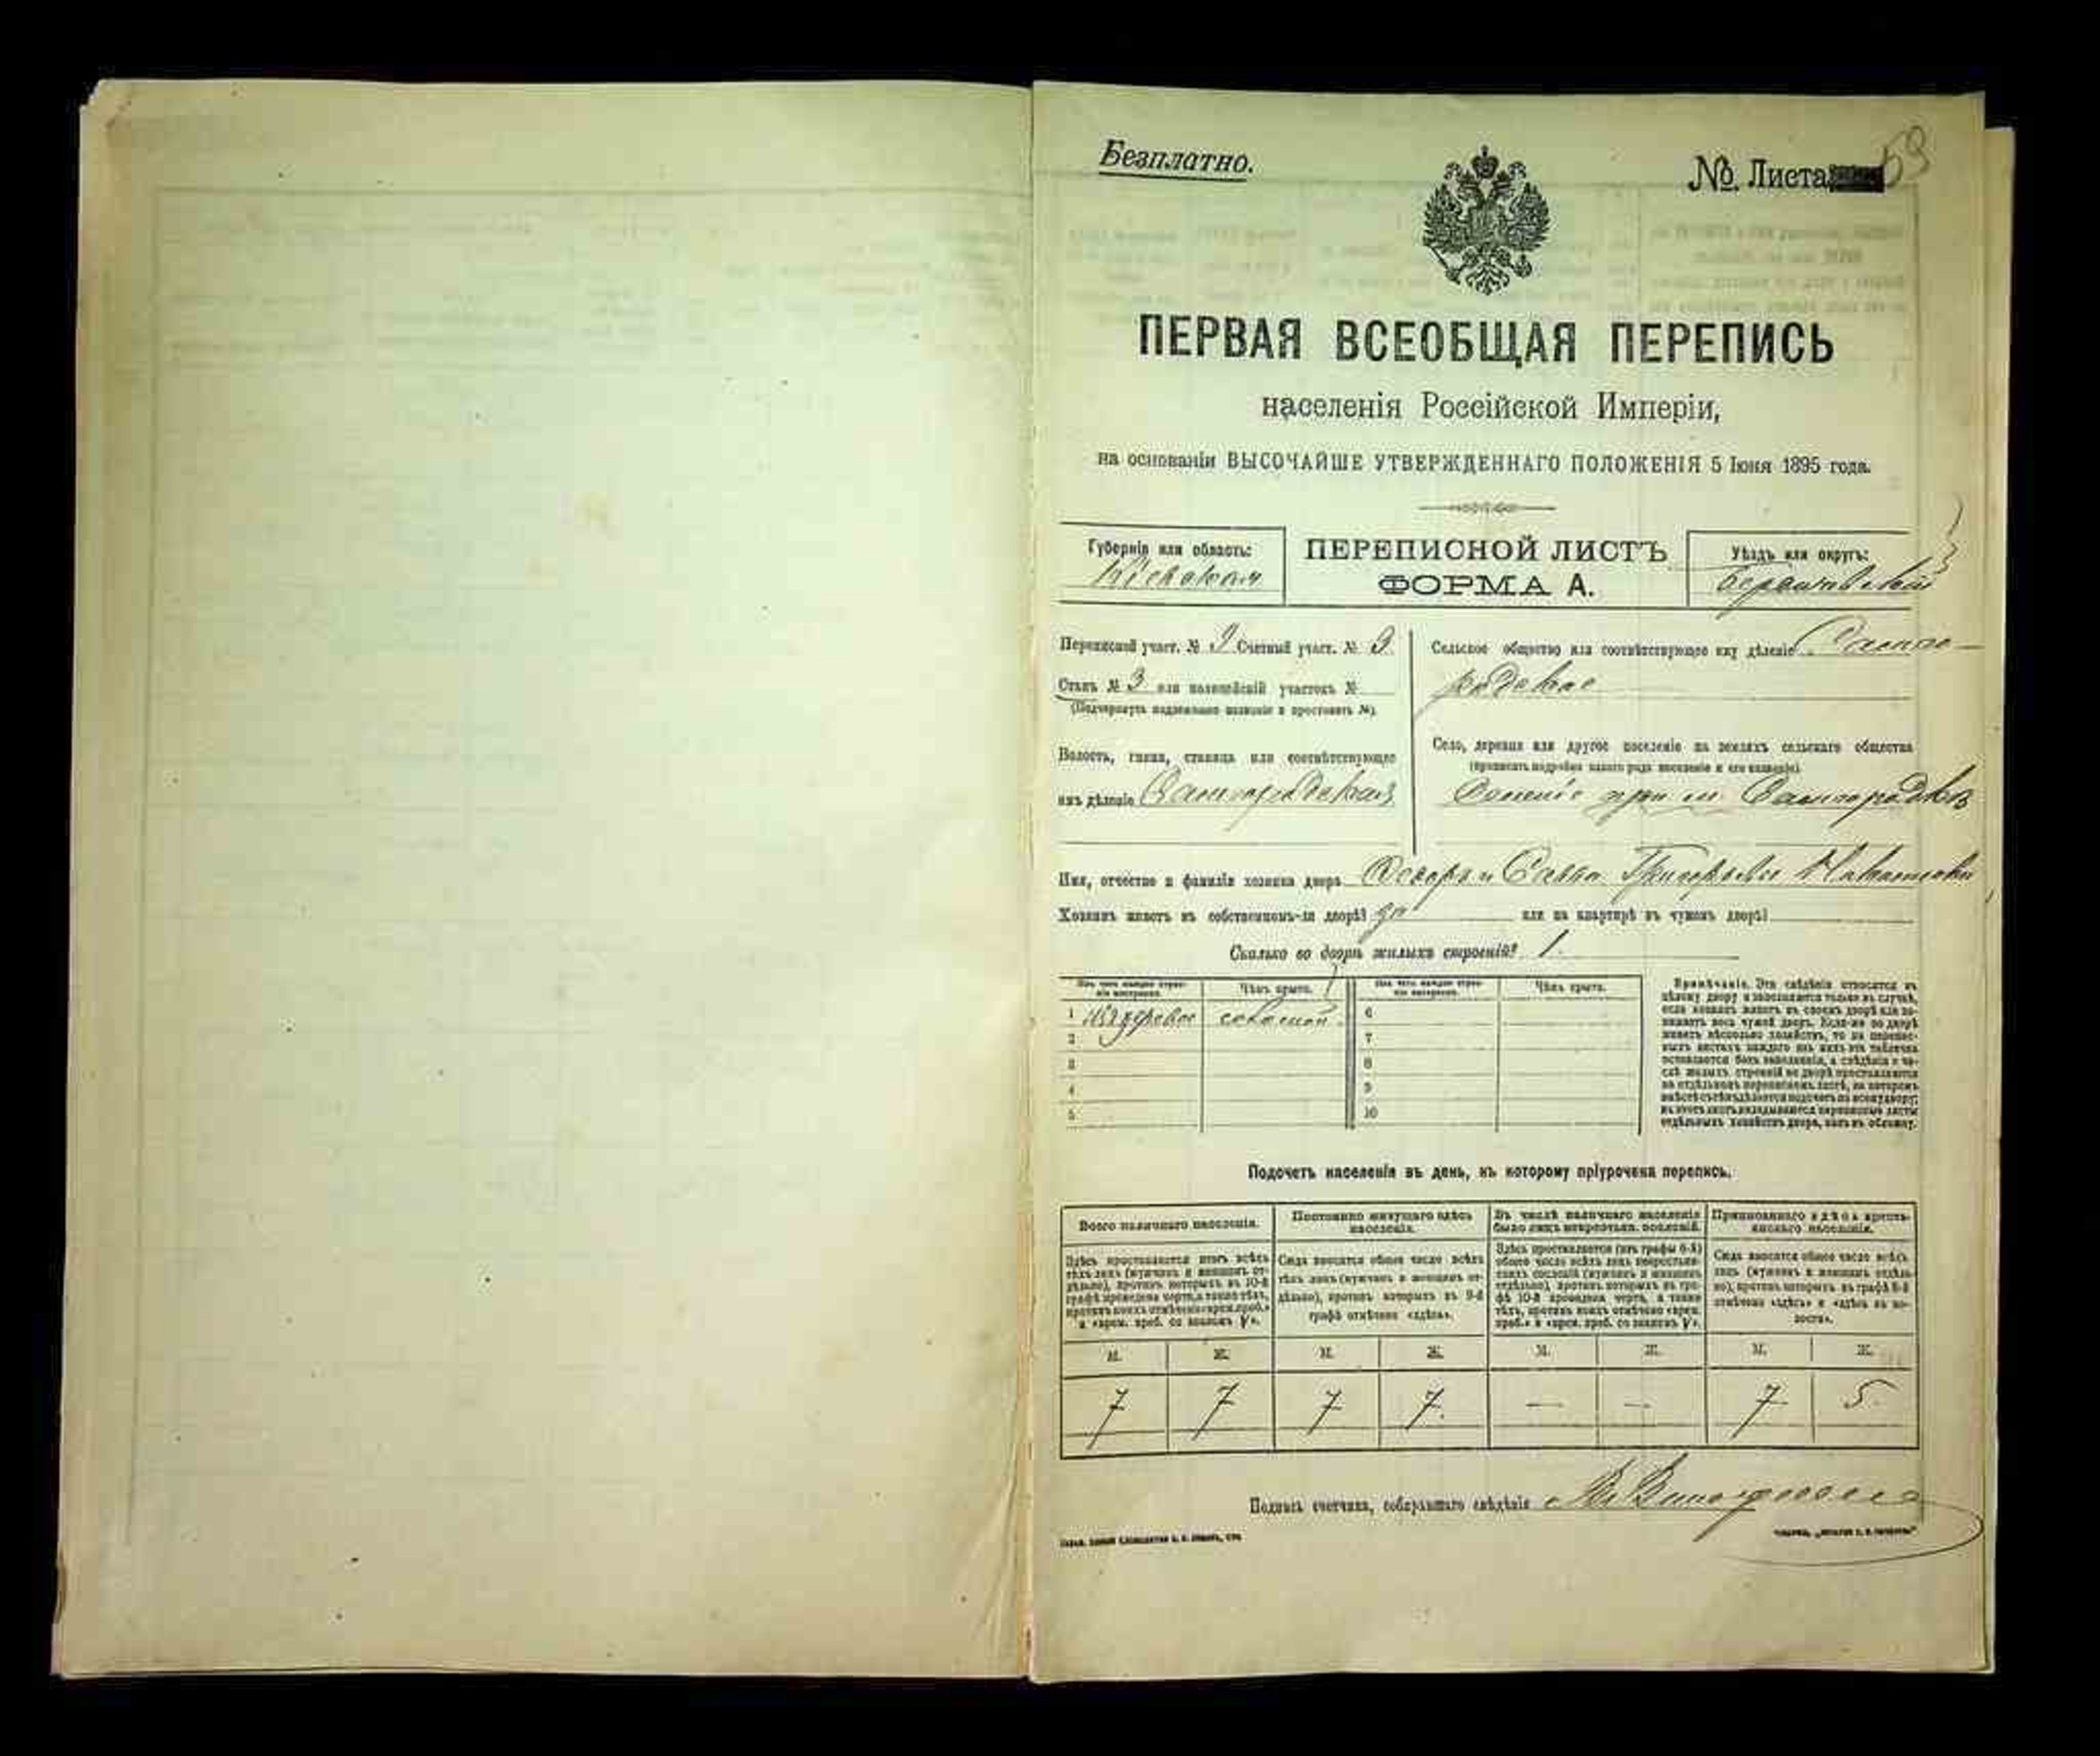 Безплатно.
№ Листа 59
ПЕРВАЯ ВСЕОБЩАЯ ПЕРЕПИСЬ
населенія Россійской Имперіи,
на основаніи ВЫСОЧАЙШЕ УТВЕРЖДЕННАГО ПОЛОЖЕНІЯ 5 Іюня 1895 года.
Губернія или область:
Кіевская
ПЕРЕПИСНОЙ ЛИСТЪ
ФОРМА А.
Уѣздъ или округъ:
Бердичевскій
Переписной участ. № Счетный участ. № 3
Станъ № 3 или полицейскій участокъ №
(Подчеркнуть надлежащее названіе и проставить №).
Волость, гмина, станица или соотвѣтствующее
имъ дѣленіе Самгородская
Сельское общество или соотвѣтствующее ему дѣленіе Самго-
родское
Село, деревня или другое поселеніе на земляхъ сельскаго общества
(прописать подробно какого рода поселеніе и его названіе)
Селеніе при м. Самгородкѣ
Имя, отчество и фамилія хозяина двора и Савва Григорьевы
Хозяинъ живетъ въ собственномъ-ли дворѣ? да или на квартирѣ въ чужомъ дворѣ?
Сколько во дворѣ жилыхъ строеній? 1.
Изъ чего каждое строеніе построено. Чѣмъ крыто. Изъ чего каждое строеніе построено. Чѣмъ крыто.
1 Из дерева соломой 6
2 7
3 8
4 9
5 10
Примѣчаніе. Эти свѣдѣнія относятся къ
цѣлому двору и заполняются только въ случаѣ,
если хозяинъ живетъ въ своемъ дворѣ или за-
нимаетъ весь чужой дворъ. Если-же во дворѣ
живетъ нѣсколько хозяйствъ, то на перепис-
ныхъ листахъ каждаго изъ нихъ эта табличка
оставляется безъ заполненія, а свѣдѣнія о чи-
слѣ жилыхъ строеній во дворѣ проставляются
на отдѣльномъ переписномъ листѣ, на которомъ
вмѣстѣ съ тѣмъ дѣлается подсчетъ по всему двору;
въ этотъ листъ вкладываются переписные листы
отдѣльныхъ хозяйствъ двора, какъ въ обложку.
Подсчетъ населенія въ день, къ которому пріурочена перепись.
Всего наличнаго населенія.
Здѣсь проставляется итогъ всѣхъ
тѣхъ лицъ (мужчинъ и женщинъ от-
дѣльно), противъ которыхъ въ 10-й
графѣ проведена черта, а также тѣхъ,
противъ коихъ отмѣчено «врем. преб.»
и «врем. преб. со знакомъ V».
Постоянно живущаго здѣсь
населенія.
Сюда вносится общее число всѣхъ
тѣхъ лицъ (мужчинъ и женщинъ от-
дѣльно), противъ которыхъ въ 9-й
графѣ отмѣчено «здѣсь».
Въ числѣ наличнаго населенія
было лицъ некрестьян. сословій.
Здѣсь проставляется (изъ графы 6-й)
общее число всѣхъ лицъ некрестьян-
скихъ сословій (мужчинъ и женщинъ
отдѣльно), противъ которыхъ въ гра-
фѣ 10-й проведена черта, а также
тѣхъ, противъ коихъ отмѣчено «врем.
преб.» и «врем. преб. со знакомъ V».
Приписаннаго здѣсь кресть-
янскаго населенія.
Сюда вносится общее число всѣхъ
лицъ (мужчинъ и женщинъ отдѣль-
но), противъ которыхъ въ графѣ 8-й
отмѣчено «здѣсь» и «здѣсь въ во-
лости».
М. Ж. М. Ж. М. Ж. М. Ж.
7 7 7 7. — — 7 5
Подпись счетчика, собиравшаго свѣдѣнія